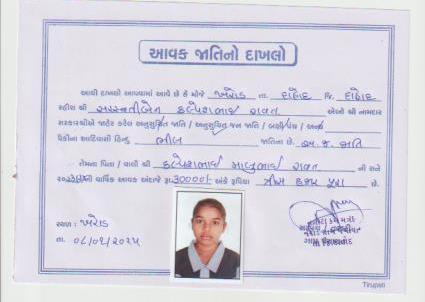 આવક જાતિનો દાખલો
આથી દાખલો આપવામાં આવે છે કે મોજે ખરોડ તા. દાહોદ જિ. દાહોદ
રહીશ શ્રી સરસ્વતીબેન કલ્પેશભાઇ રાવત એઓ શ્રી નામદાર
સરકારશ્રીએ જાહેર કરેલ અનુસુચિત જાતિ / અનુસુચિત જન જાતિ / બક્ષીપંચ / અન્ય
પૈકીના આદિવાસી હિન્દુ ભીલ જાતિના છે. અ.જ.જાતિ
તેમના પિતા / વાલી શ્રી કલ્પેશભાઇ રાવત ની સને
ની વાર્ષિક આવક અંદાજે રૂા. 30000/- અંકે રૂપિયા ત્રીસ હજાર પુરા છે.
સ્થળ : ખરોડ
તા.
Tirupati